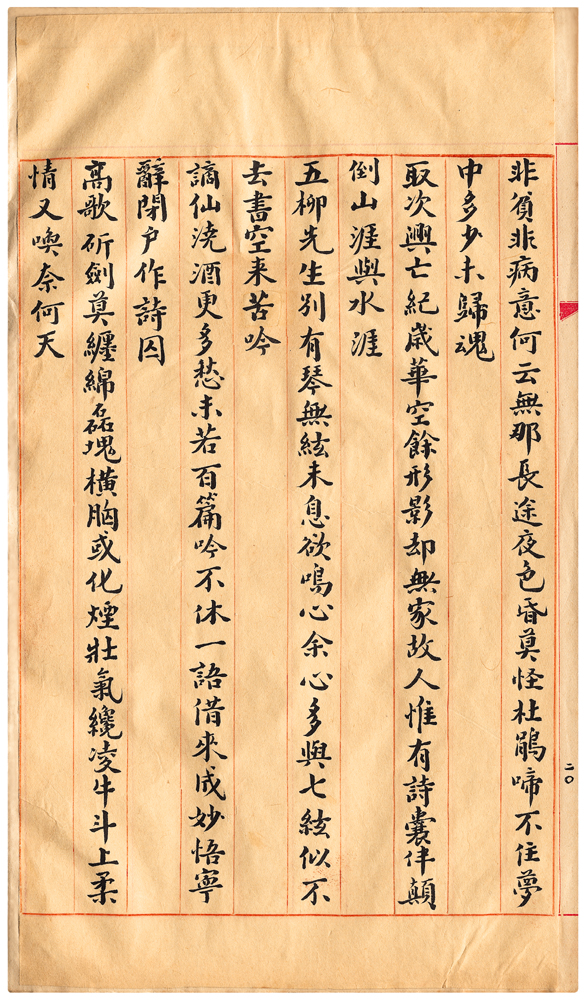 非貧非病意何云無那長途夜色昏莫怪杜鵑啼不住夢
中多少未歸魂
取次興亡紀歲華空餘形影却無家故人惟有詩囊伴顛
倒山涯與水涯
五柳先生別有琴無絃未息欲鳴心余心多與七絃似不
去書空來苦吟
謫仙澆酒更多愁未若百篇吟不休一語借來成妙悟寧
辭閉戶作詩囚
高歌斫劍莫纏綿磊塊橫胸或化煙壯氣纔凌牛斗上柔
情又喚奈何天
二〇